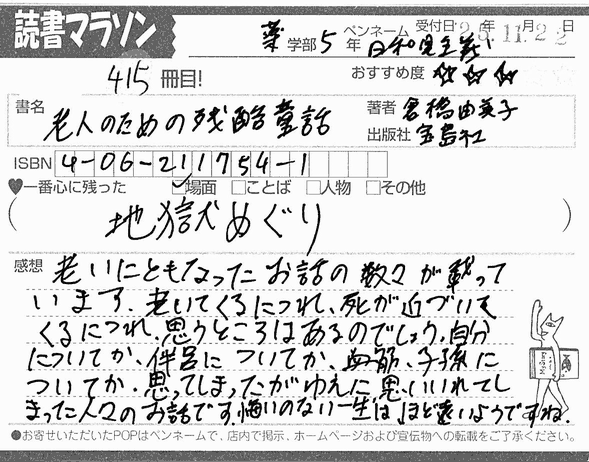 読書マラソン
薬学部5年 ペンネーム 日和見主義 受付日 '25年11月22日
415冊目! おすすめ度 ☆☆☆
書名 老人のための残酷童話 著者 倉橋由美子
出版社 宝島社
ISBN 4-06-211754-1
♥一番心に残った ☑場面 □ことば □人物 □その他
(地獄めぐり)
感想 老いにともなったお話の数々が載って
います。老いてくるにつれ、死が近づいて
くるにつれ、思うところはあるのでしょう。自分
についてか、伴侶についてか、血筋、子孫に
ついてか。思ってしまったがゆえに思いいれてし
まった人々のお話です。悔いのない一生は、ほど遠いようですね。
●お寄せいただいたPOPはペンネームで、店内で掲示、ホームページおよび宣伝物への転載をご了承ください。